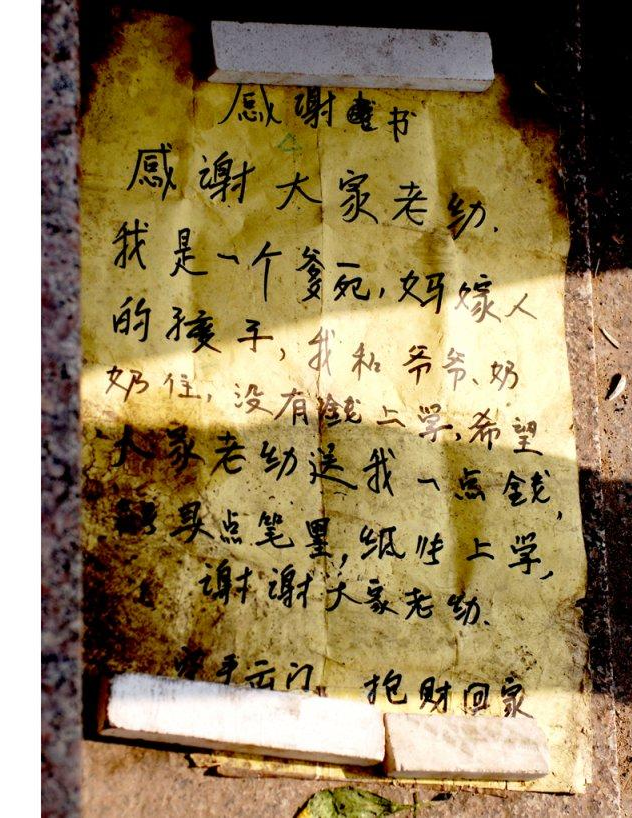 感谢书
感谢大家老幼.
我是一个爹死,妈嫁人
的孩子,我和爷爷、奶
奶住,没有銭上学,希望
大家老幼送我一点銭,
买点笔墨,纸张上学,
谢谢大家老幼.
手云门 抱财回家